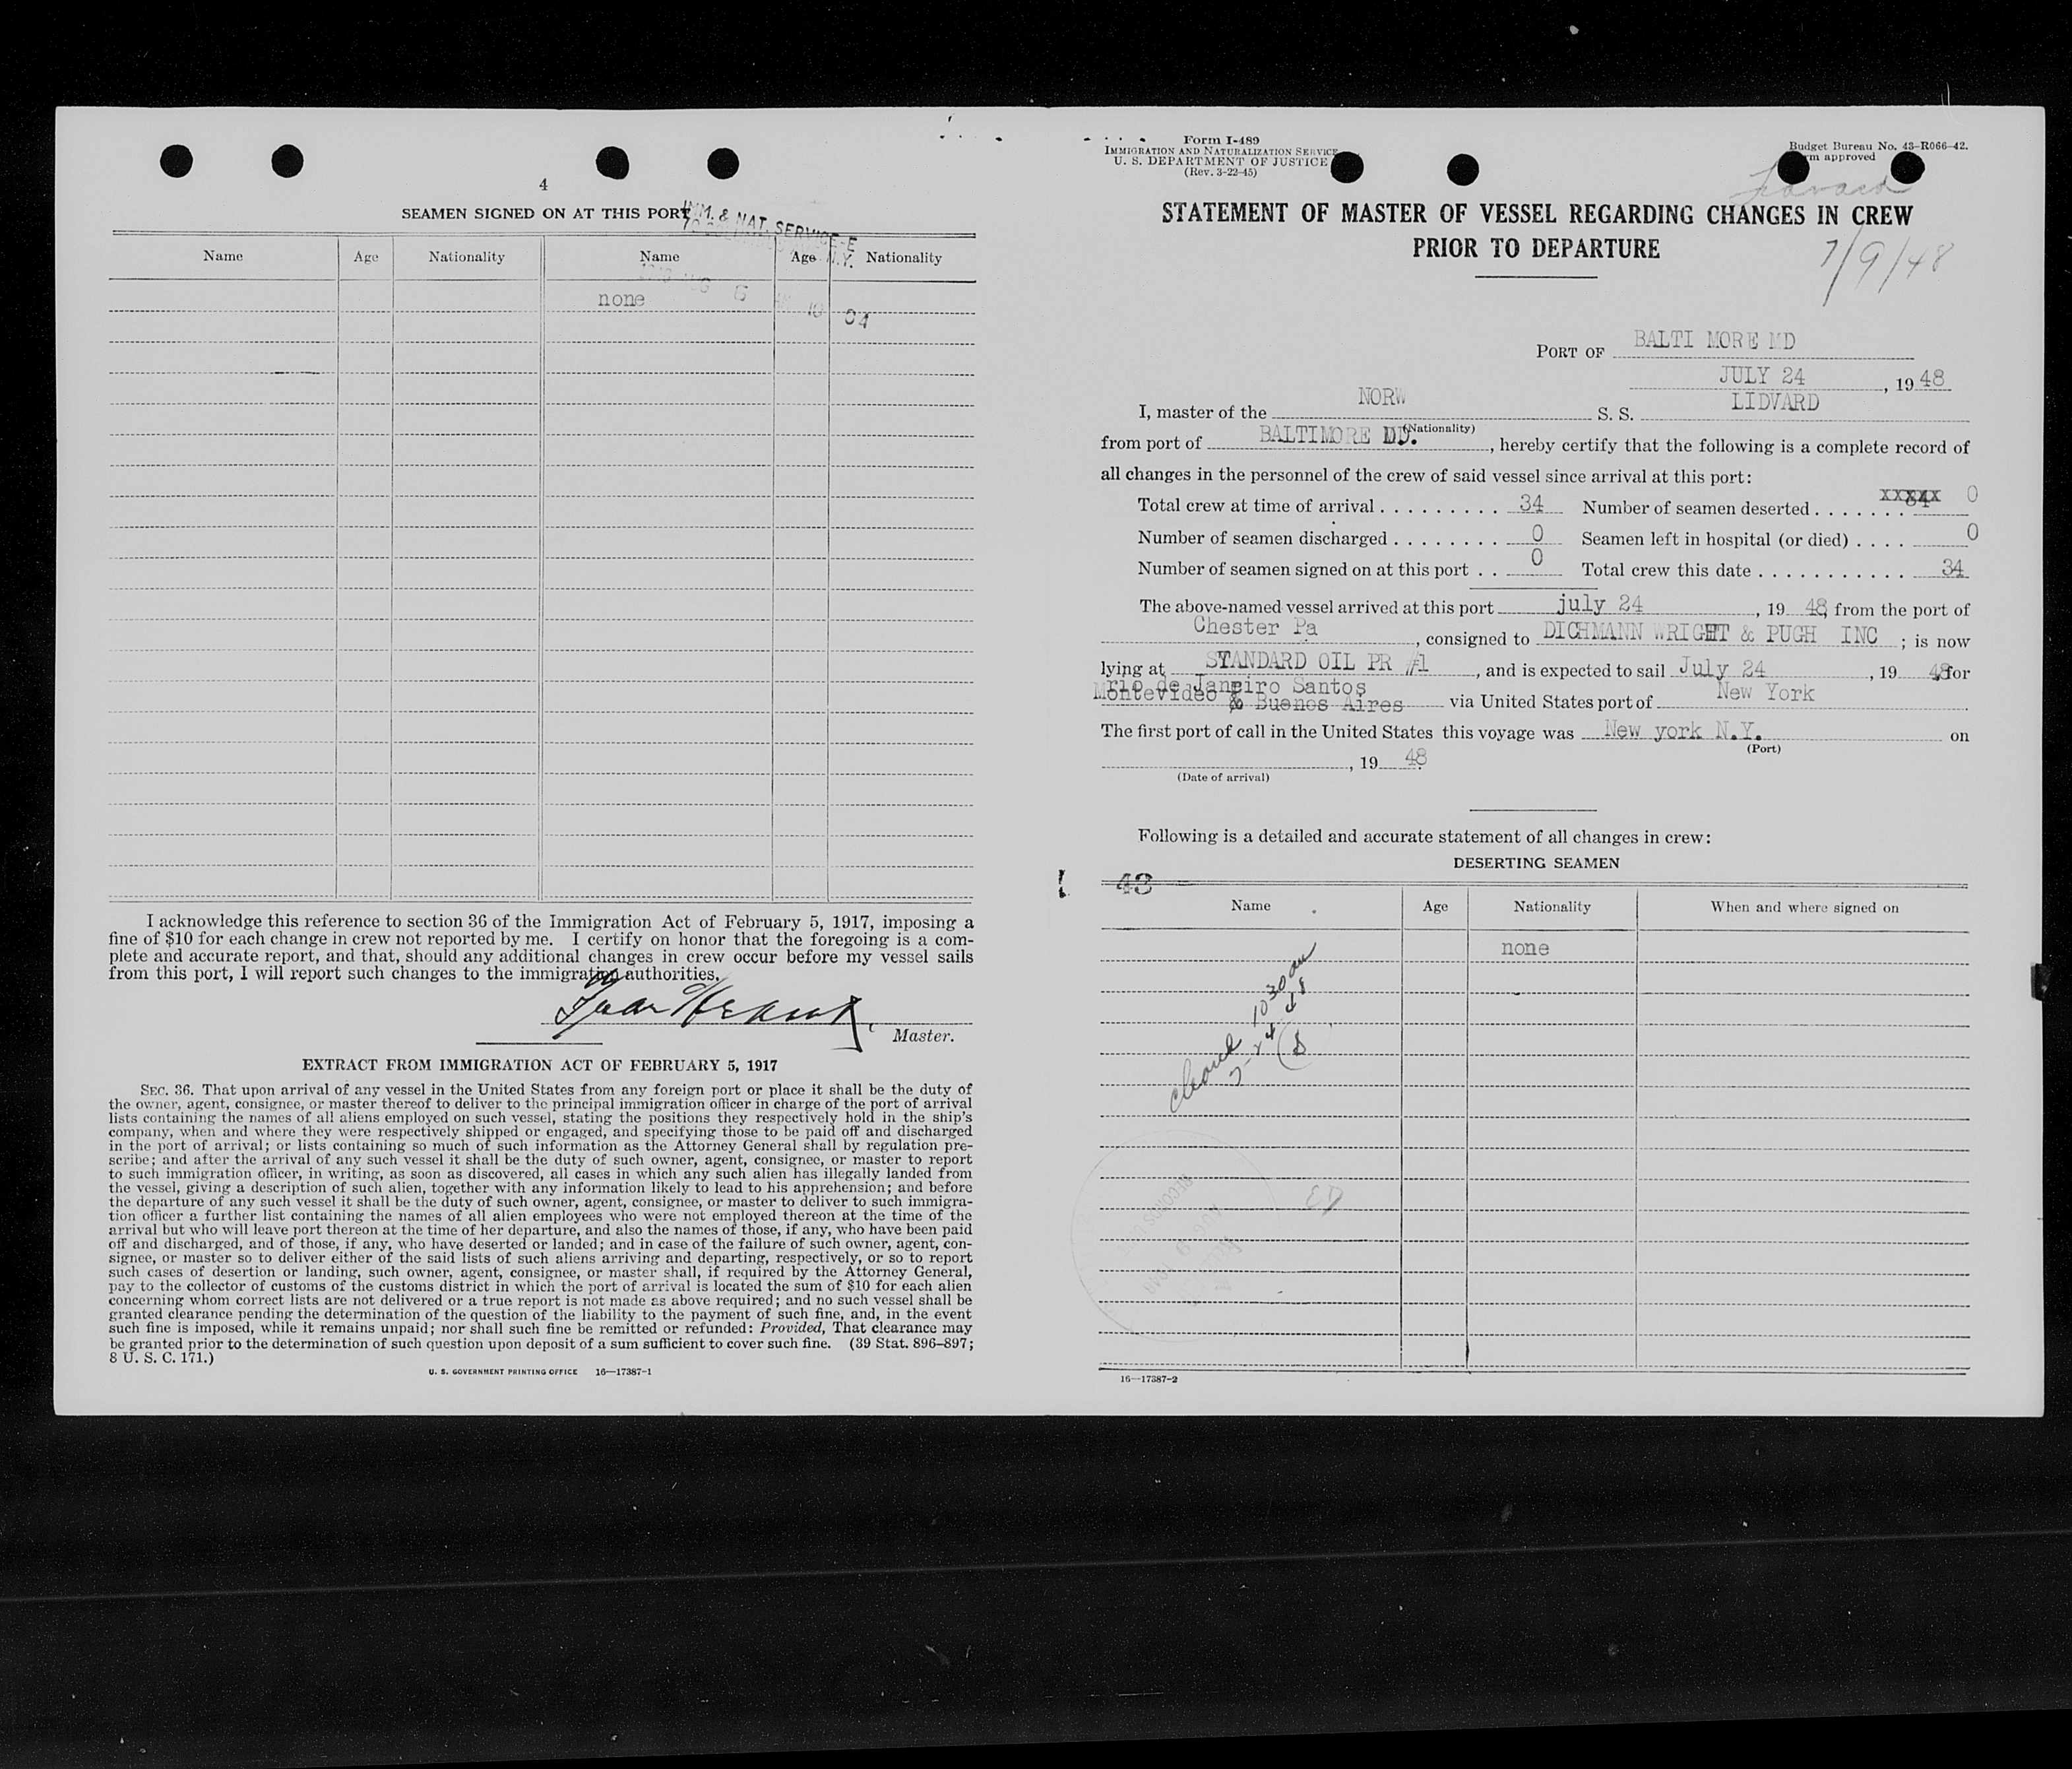 4
SEAMEN SIGNED ON AT THIS PORT
IMM. & NAT. SERVICE-E
N.Y.
Name Age Nationality Name Age Nationality
none
10 04
I acknowledge this reference to section 36 of the Immigration Act of February 5, 1917, imposing a
fine of $10 for each change in crew not reported by me. I certify on honor that the foregoing is a com-
plete and accurate report, and that, should any additional changes in crew occur before my vessel sails
from this port, I will report such changes to the immigration authorities.
Master.
EXTRACT FROM IMMIGRATION ACT OF FEBRUARY 5, 1917
SEC. 36. That upon arrival of any vessel in the United States from any foreign port or place it shall be the duty of
the owner, agent, consignee, or master thereof to deliver to the principal immigration officer in charge of the port of arrival
lists containing the names of all aliens employed on such vessel, stating the positions they respectively hold in the ship's
company, when and where they were respectively shipped or engaged, and specifying those to be paid off and discharged
in the port of arrival; or lists containing so much of such information as the Attorney General shall by regulation pre-
scribe; and after the arrival of any such vessel it shall be the duty of such owner, agent, consignee, or master to report
to such immigration officer, in writing, as soon as discovered, all cases in which any such alien has illegally landed from
the vessel, giving a description of such alien, together with any information likely to lead to his apprehension; and before
the departure of any such vessel it shall be the duty of such owner, agent, consignee, or master to deliver to such immigra-
tion officer a further list containing the names of all alien employees who were not employed thereon at the time of the
arrival but who will leave port thereon at the time of her departure, and also the names of those, if any, who have been paid
off and discharged, and of those, if any, who have deserted or landed; and in case of the failure of such owner, agent, con-
signee, or master so to deliver either of the said lists of such aliens arriving and departing, respectively, or so to report
such cases of desertion or landing, such owner, agent, consignee, or master shall, if required by the Attorney General,
pay to the collector of customs of the customs district in which the port of arrival is located the sum of $10 for each alien
concerning whom correct lists are not delivered or a true report is not made as above required; and no such vessel shall be
granted clearance pending the determination of the question of the liability to the payment of such fine, and, in the event
such fine is imposed, while it remains unpaid; nor shall such fine be remitted or refunded: Provided, That clearance may
be granted prior to the determination of such question upon deposit of a sum sufficient to cover such fine. (39 Stat. 896-897;
8 U. S. C. 171.)
U. S. GOVERNMENT PRINTING OFFICE 16—17387-1
Form I-489
IMMIGRATION AND NATURALIZATION SERVICE
U. S. DEPARTMENT OF JUSTICE
(Rev. 3-22-45)
Budget Bureau No. 43-R066-42.
approved
STATEMENT OF MASTER OF VESSEL REGARDING CHANGES IN CREW
PRIOR TO DEPARTURE
7/9/48
PORT OF BALTI MORE MD
JULY 24, 1948
I, master of the NORW S. S. LIDVARD
(Nationality)
from port of BALTIMORE MD., hereby certify that the following is a complete record of
all changes in the personnel of the crew of said vessel since arrival at this port:
Total crew at time of arrival . . . . . . . . . 34 Number of seamen deserted . . . . . . . xxxxx 0
Number of seamen discharged . . . . . . . . 0 Seamen left in hospital (or died) . . . . 0
Number of seamen signed on at this port . . 0 Total crew this date . . . . . . . . . . . . 34
The above-named vessel arrived at this port july 24, 19 48, from the port of
Chester Pa, consigned to DICHMANN WRIGHT & PUGH INC ; is now
lying at STANDARD OIL PR #1, and is expected to sail July 24, 19 48, for
rio de Janeiro Santos
Montevideo & Buenos Aires via United States port of New York
The first port of call in the United States this voyage was New york N.Y. on
(Port)
, 19 48
(Date of arrival)
Following is a detailed and accurate statement of all changes in crew:
DESERTING SEAMEN
48
Name Age Nationality When and where signed on
none
10 30 am
7-24 48
16—17387-2